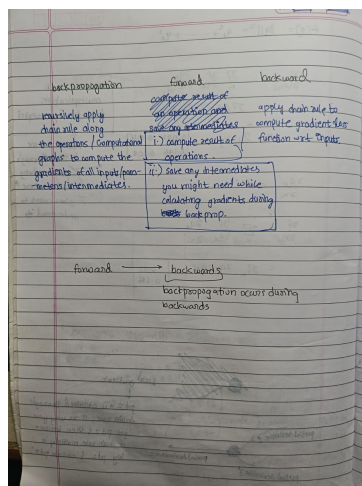 backpropagation
recursively apply
chain rule along
the operations / computational
graphs to compute the
gradients of all inputs/para-
meters/intermediates.
forward
compute result of
an operation and
save any intermediates
i.) compute result of
operations.
ii.) save any intermediates
you might need while
calculating gradients during
backprop.
backward
apply chain rule to
compute gradient loss
function wrt inputs.
forward → backwards
backpropogation occurs during
backwards